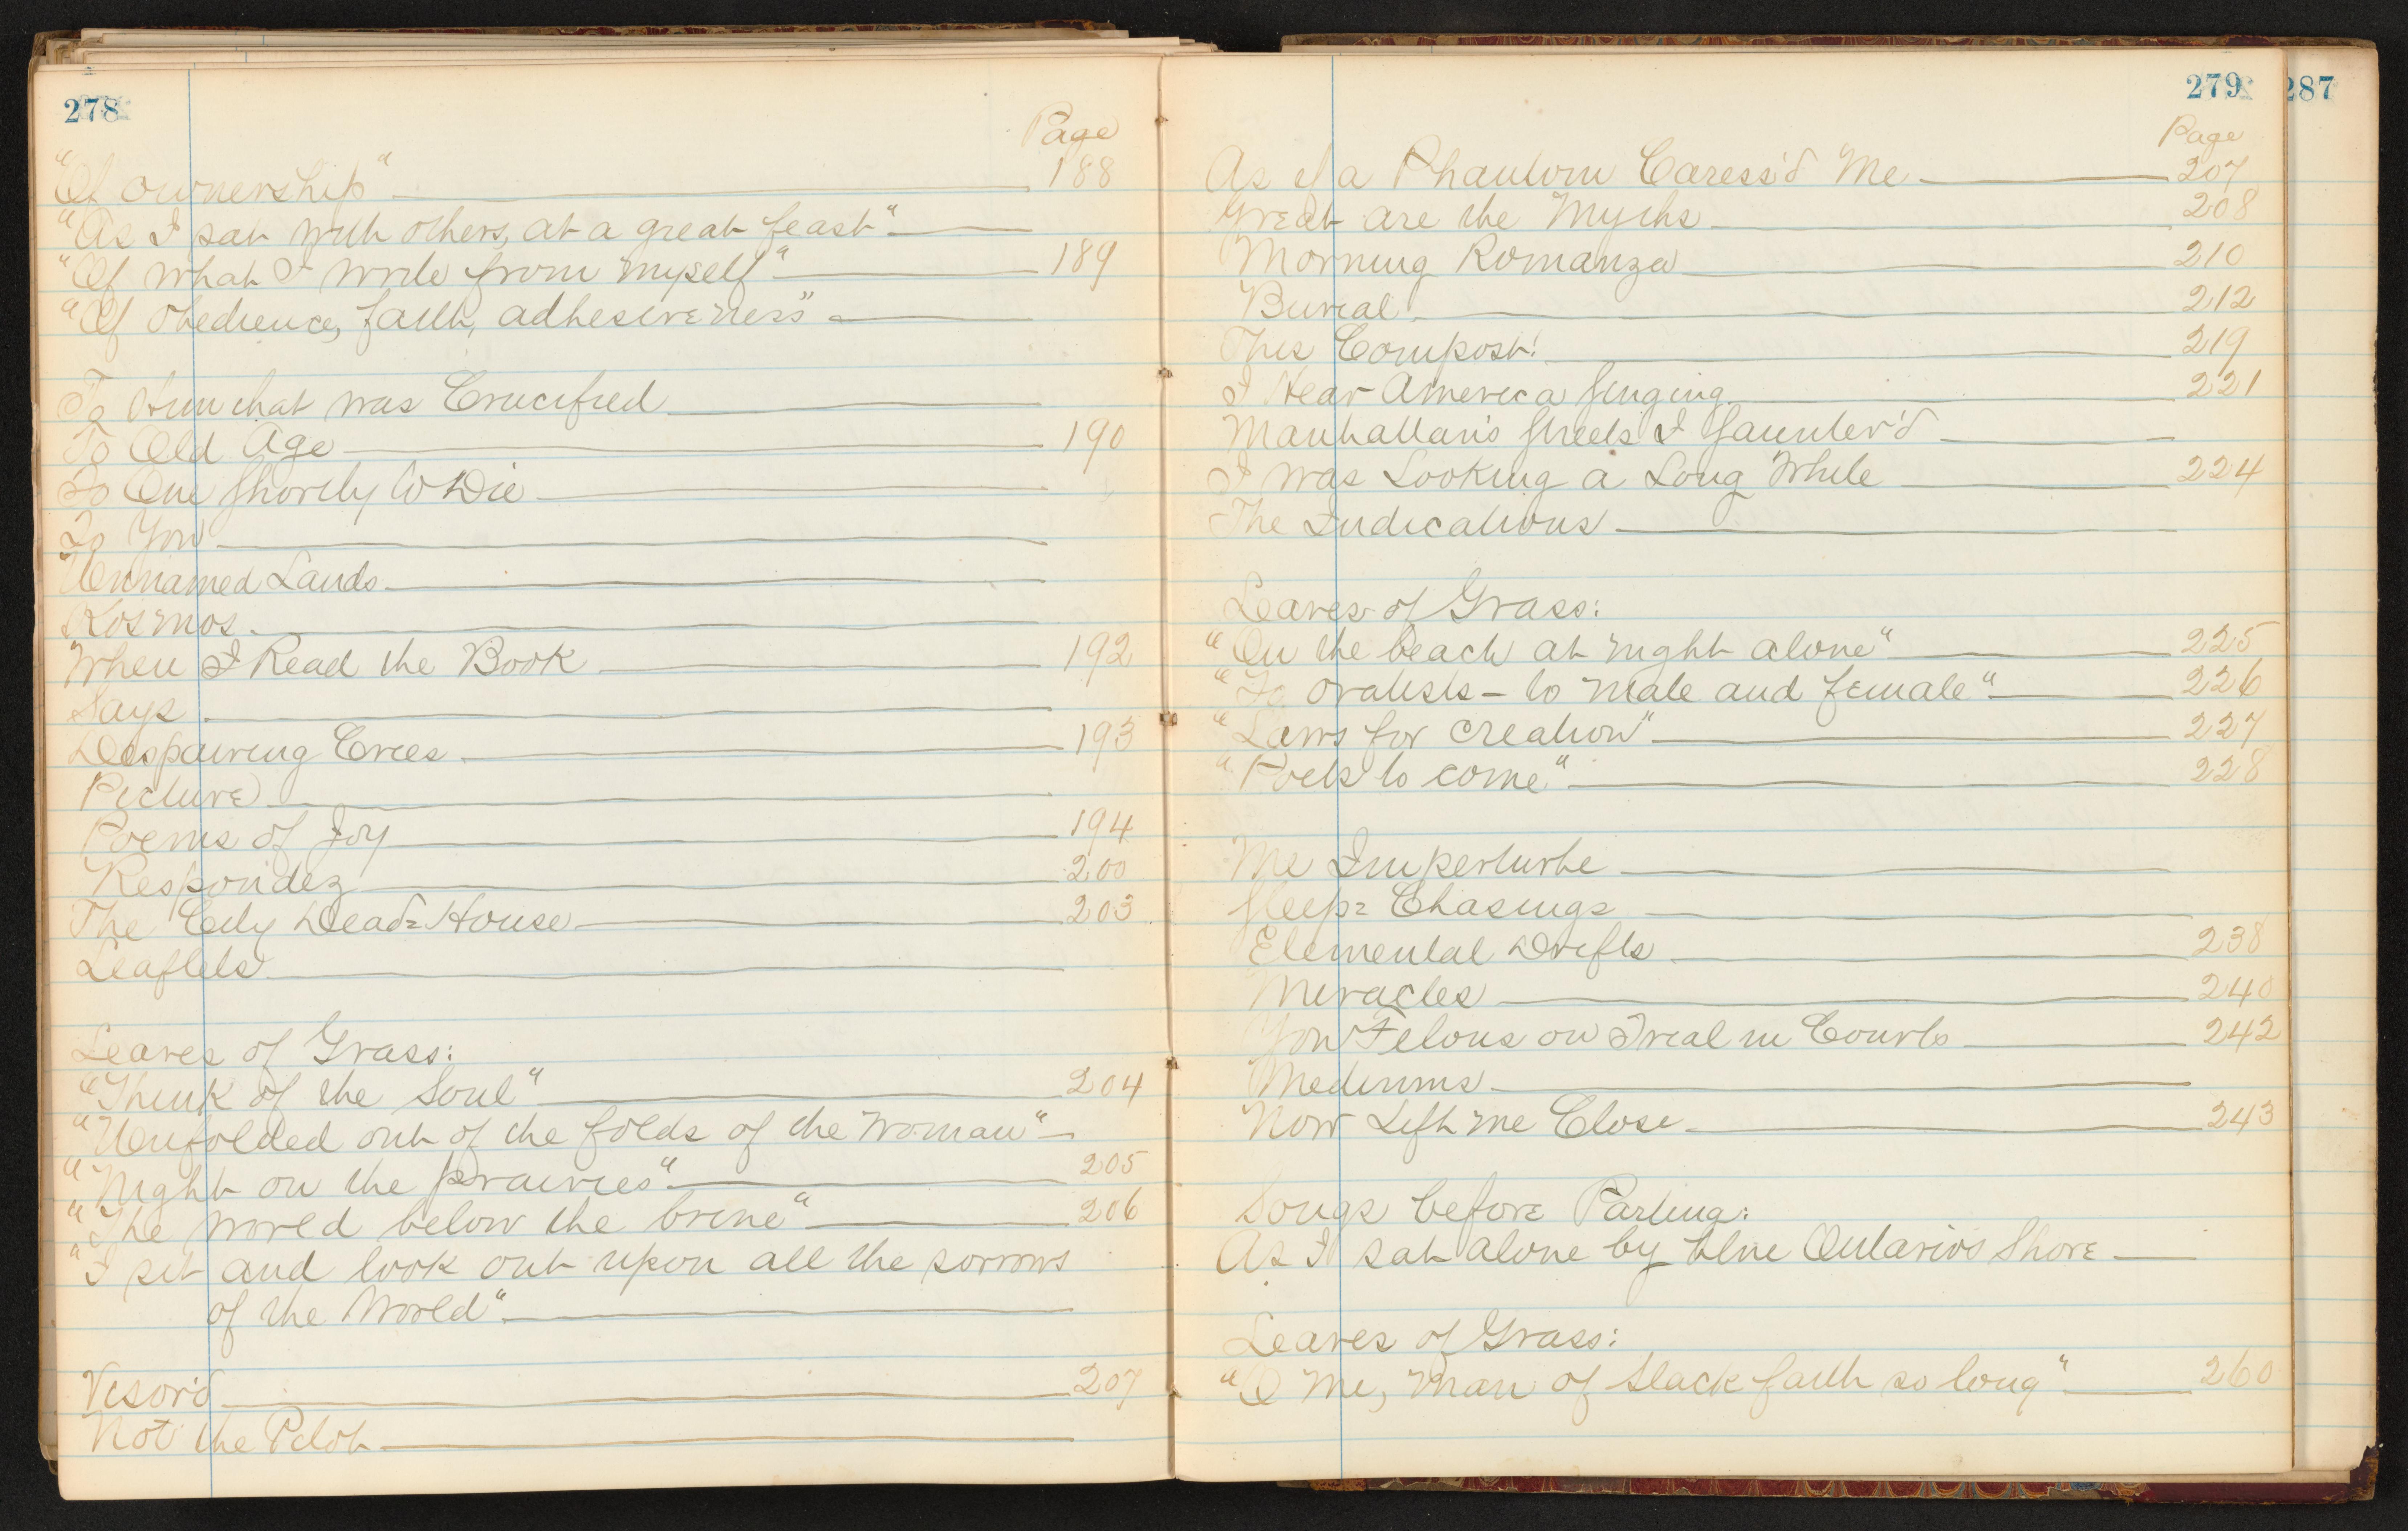 278
Page
"Of ownership" 188
"As I sat with others, at a great feast"
"Of what I write from myself" 189
"Of obedience, faith, adhesiveness"
To Him that was Crucified
To Old Age 190
To One Shortly to Die
To You
Unnamed Lands
Kosmos
When I Read the Book 192
Says
Despairing Cries 193
Picture
Poems of Joy 194
Respondez 200
The City Dead=House 203
Leaflets
Leaves of Grass:
"Think of the Soul" 204
"Unfolded out of the folds of the woman"
"Night on the prairies" 205
"The world below the brine" 206
"I sit and look out upon all the sorrows
of the World"
Visor'd 207
Not the Pilot
279
287
Page
As if a Phantom Caress'd Me 207
Great are the Myths 208
Morning Romanza 210
Burial 212
This Compost! 219
I Hear America Singing 221
Manhattan's Streets I Saunter'd
I was Looking a Long While 224
The Indications
Leaves of Grass:
"On the beach at night alone" 225
"To oratists – to male and female" 226
"Laws for creation" 227
"Poets to come" 228
Me Imperturbe
Sleep=Chasings
Elemental Drifts 238
Miracles 240
You Felons on Trial in Courts 242
Mediums
Now Lift me Close 243
Songs before Parting:
As I sat alone by blue Ontario's Shore
Leaves of Grass:
"O Me, man of slack faith so long" 260